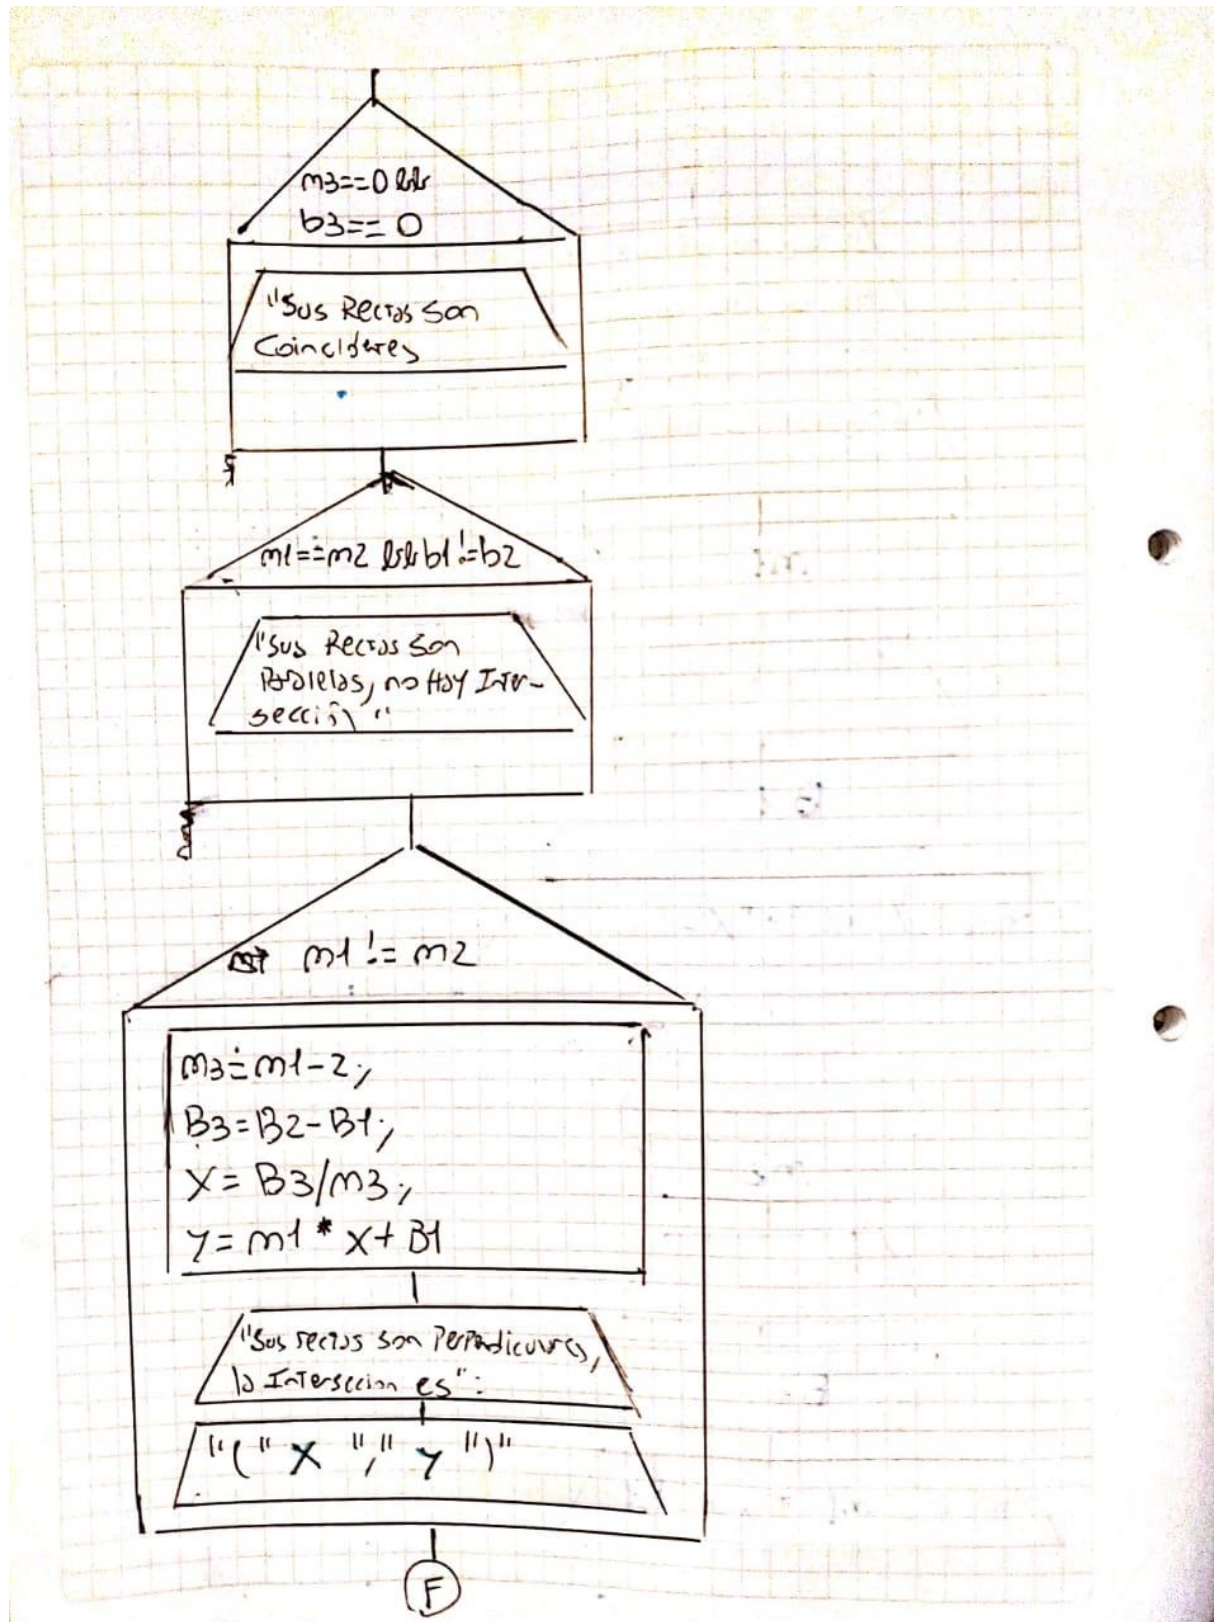 m3==0 &&
b3==0
"Sus Rectas Son
Coincidentes
m1==m2 && b1!=b2
"Sus Rectas Son
Paralelas, no Hay Inter-
sección"
m1 != m2
m3=m1-2;
B3=B2-B1;
X=B3/m3;
Y=m1*X+B1
"Sus rectas son Perpendiculares,
la Interseccion es":
"(" X "," Y ")"
F